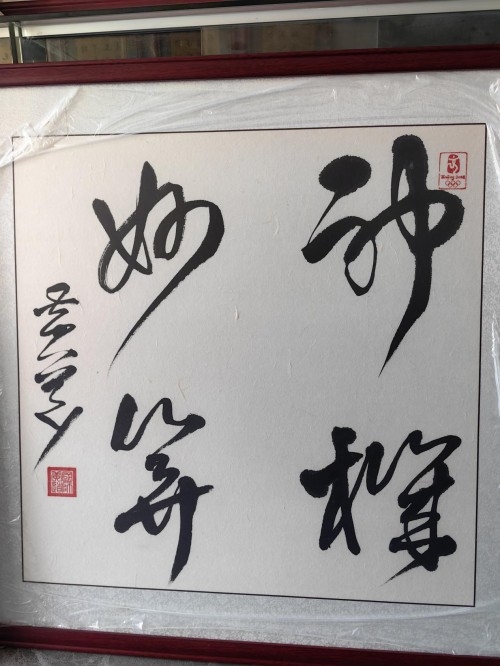 神機
妙算
Beijing 2008